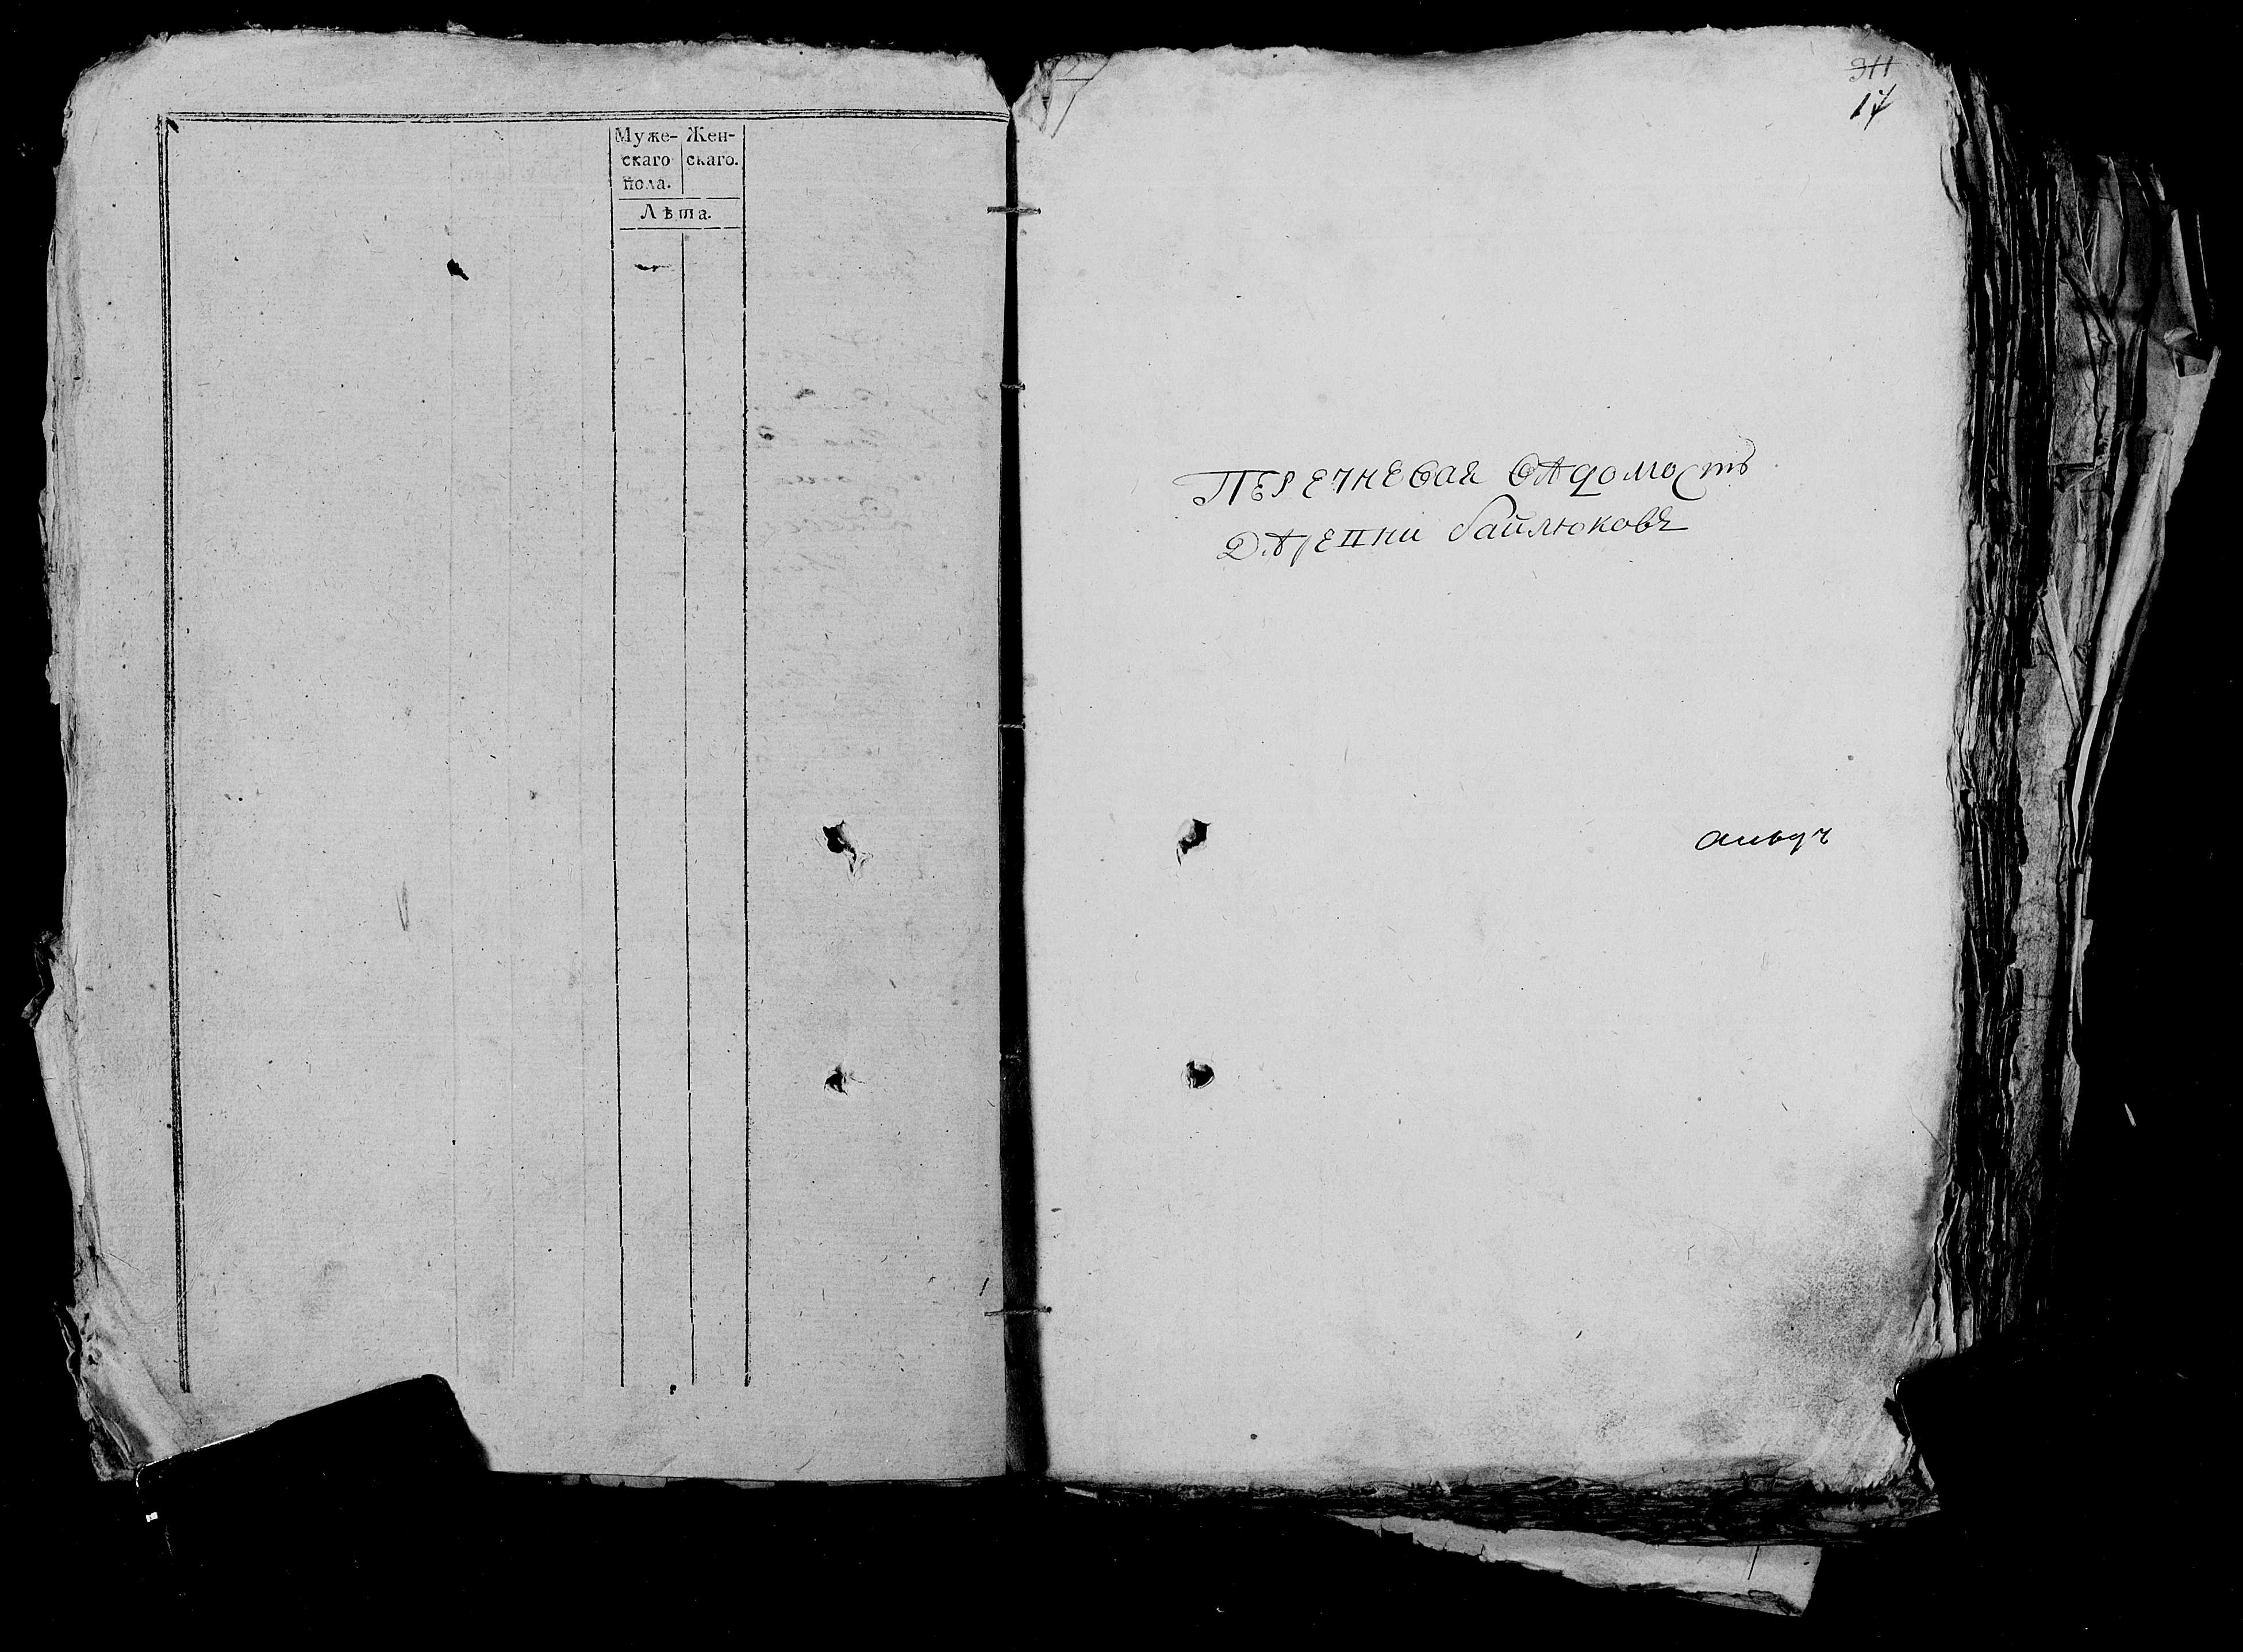 Муже-
скаго
пола.
Жен-
скаго.
Лѣта.
311
17
ПЕРЕЧНЕВАЯ ВѣДОМОСТЬ
Дѣрепни байлюковъ